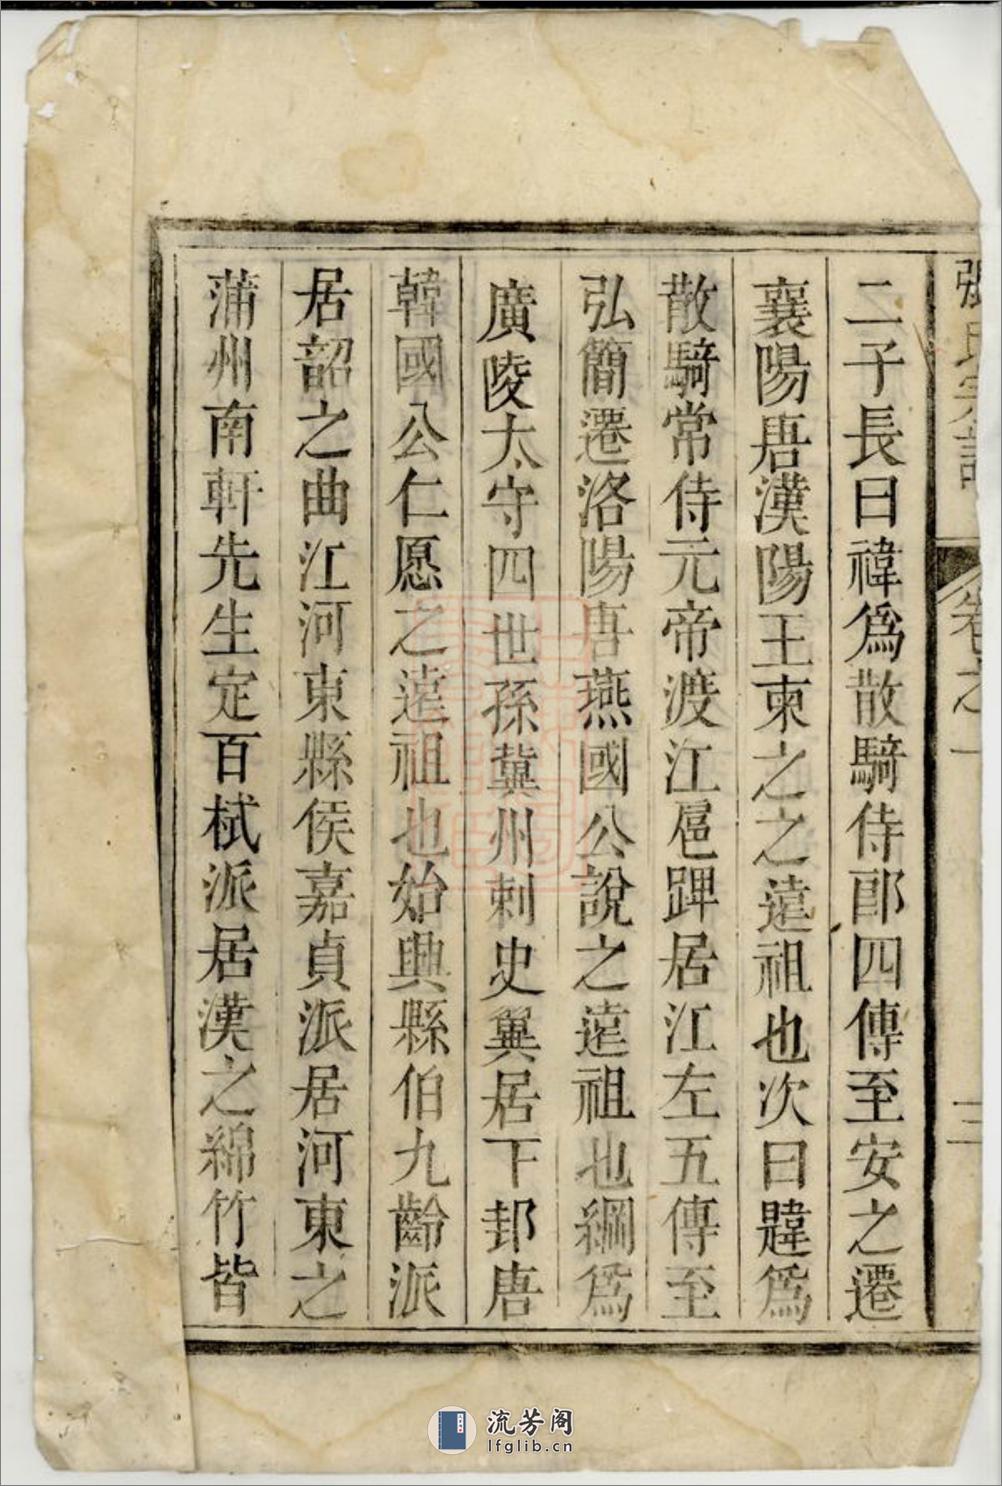 張氏宗譜 卷之一 三
二子長曰禕爲散騎侍郎四傳至安之遷
襄陽唐漢陽王柬之之遠祖也次曰韙爲
散騎常侍元帝渡江扈蹕居江左五傳至
弘簡遷洛陽唐燕國公說之遠祖也綱爲
廣陵太守四世孫冀州刺史翼居下邽唐
韓國公仁愿之遠祖也始興縣伯九齡派
居韶之曲江河東縣侯嘉貞派居河東之
蒲州南軒先生定百栻派居漢之綿竹皆
流芳阁
lfglib.cn